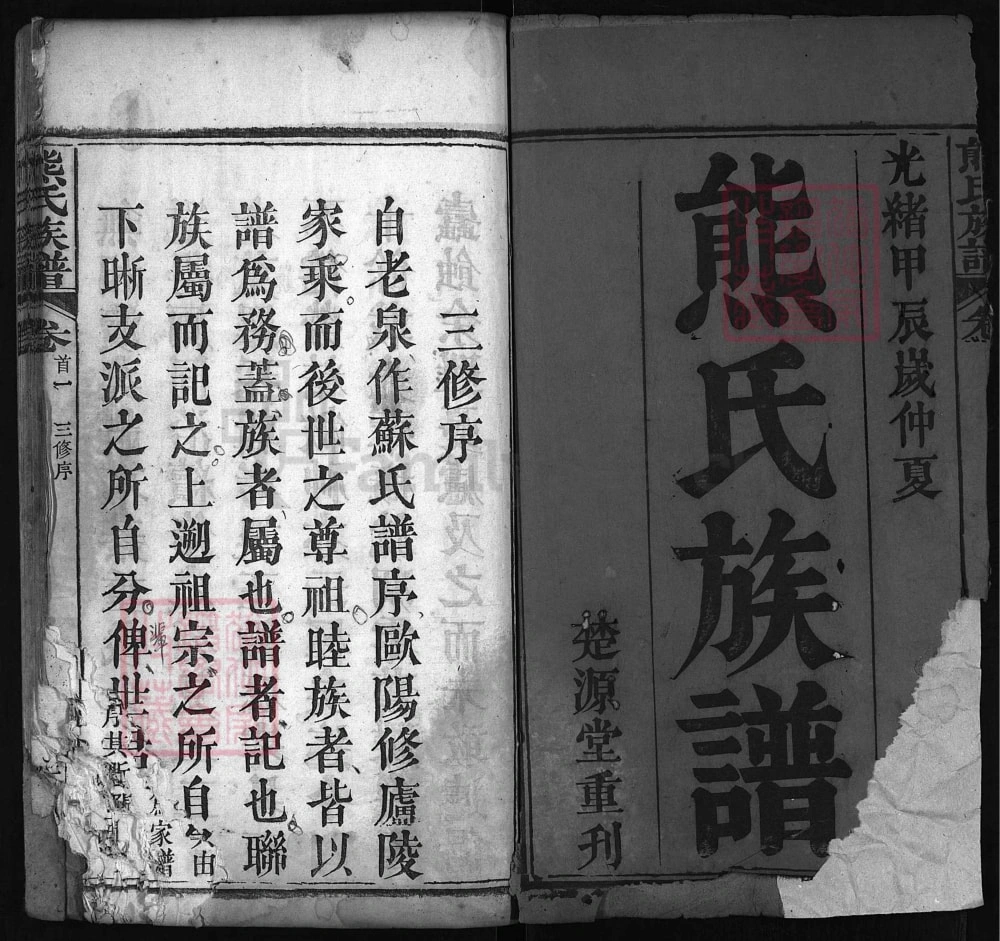 光緒甲辰歲仲夏
熊氏族譜
楚源堂重刊
三修序
自老泉作蘇氏譜序歐陽修廬陵
家乘而後世之尊祖睦族者皆以
譜為務蓋族者屬也譜者記也聯
族屬而記之上遡祖宗之所自
下晰支派之所自分俾世
熊氏族譜
卷
首一
三修序
家譜